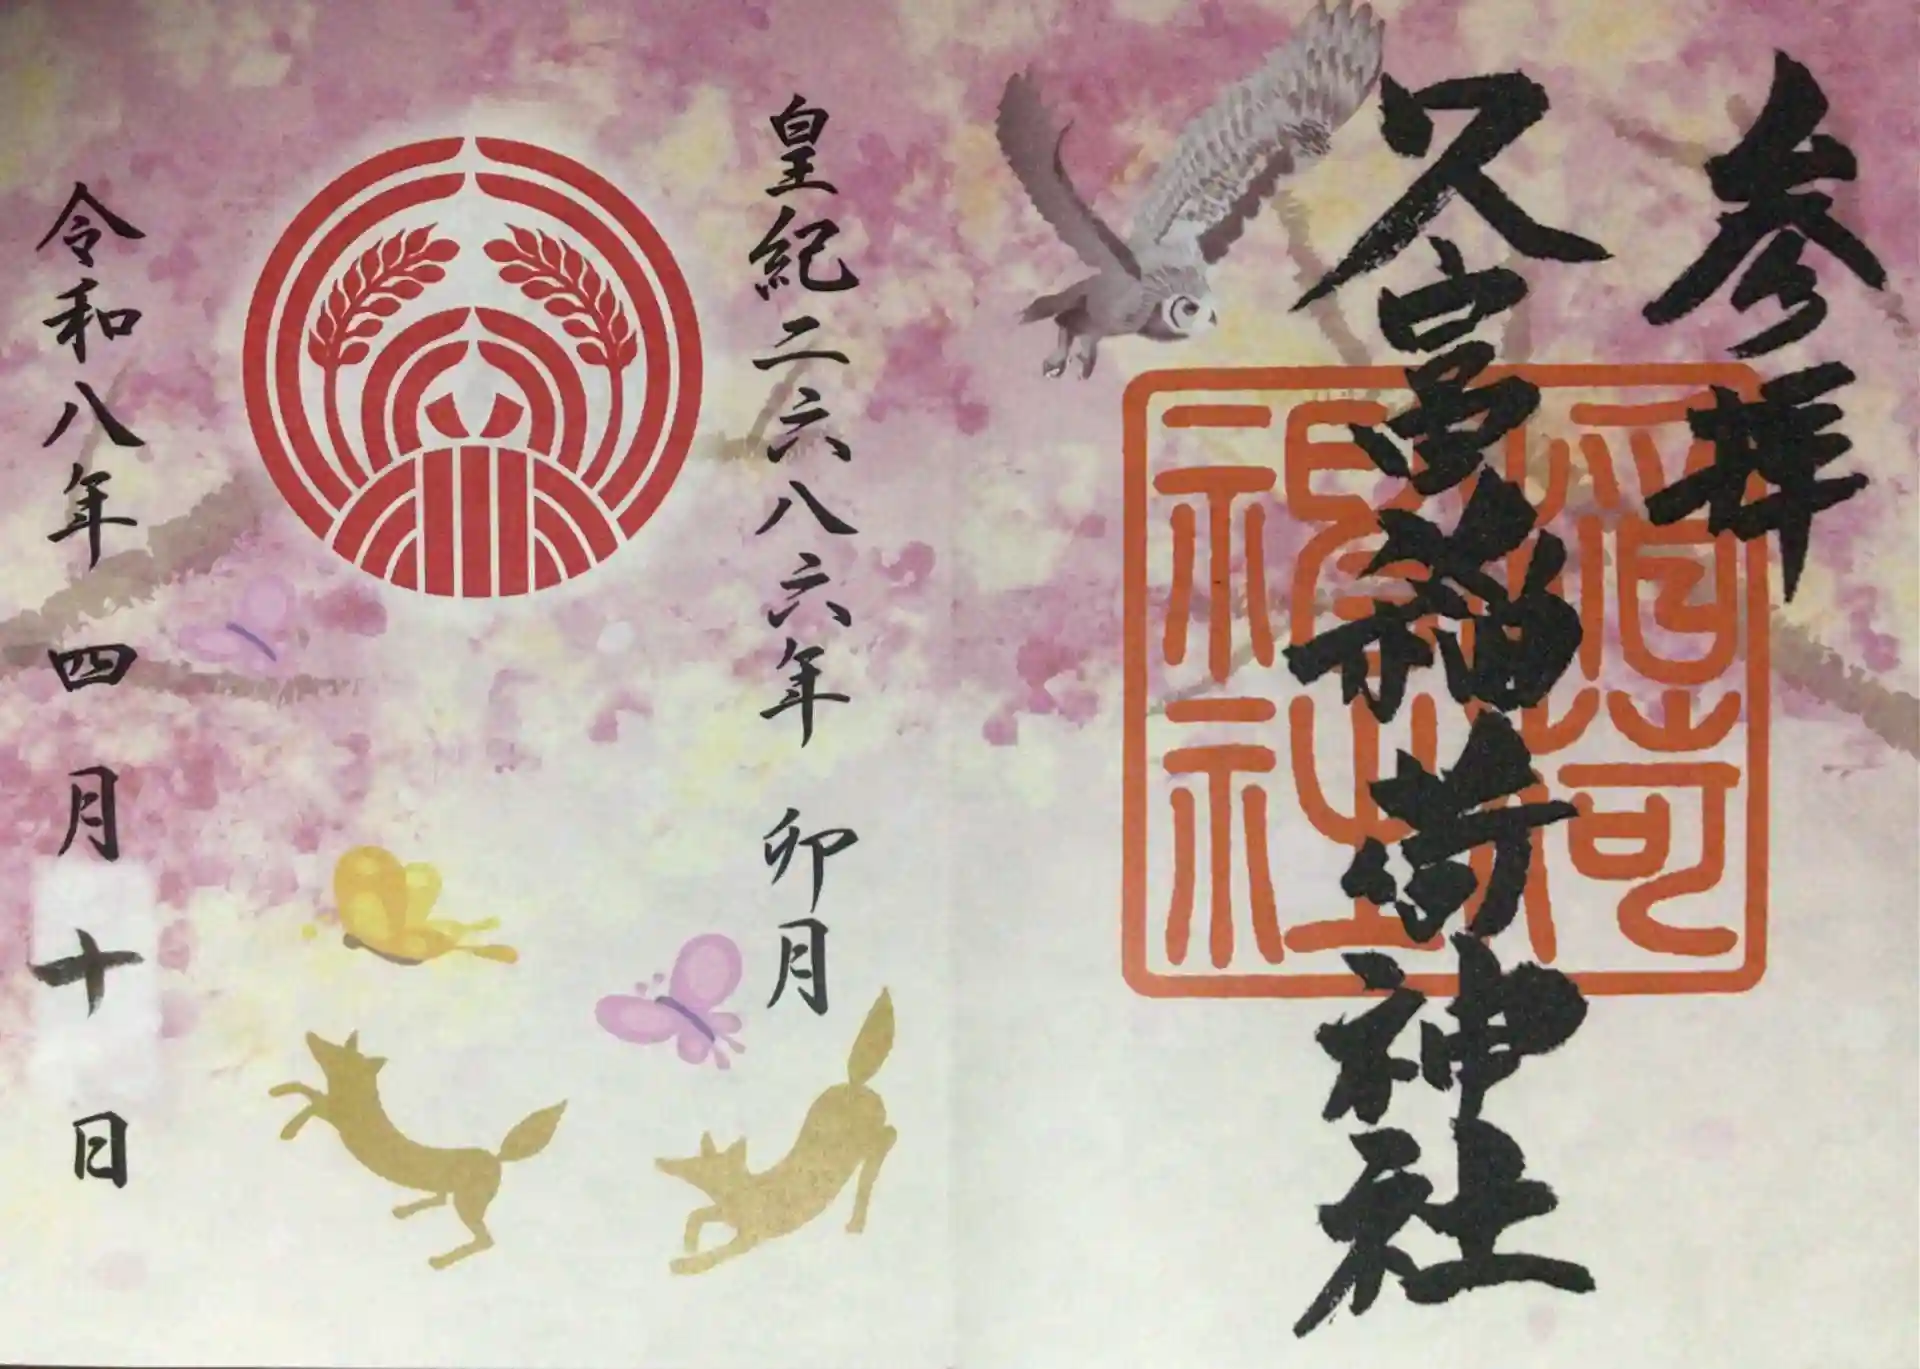 参拝
久富稲荷神社
稲荷
神社
皇紀二六八六年 卯月
令和八年四月十日